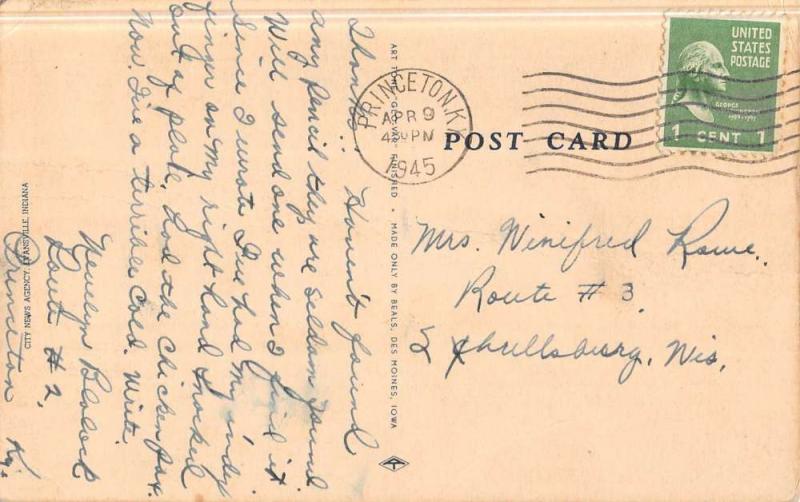 Thanks! Haven't found
any pencil they are seldom found
Will send one when I find it.
Since I wrote I've had my indy
finger on my right hand knocked
out of plate. had the chicken pox.
Now I've a terrible cold. Write.
Blalock
Route #2,
Princeton Ky.
CITY NEWS AGENCY, EVANSVILLE, INDIANA
ART TONE "GLO-VAR" FINISHED • MADE ONLY BY BEALS, DES MOINES, IOWA
PRINCETON, KY.
APR 9
PM
1945
POST CARD
UNITED
STATES
POSTAGE
GEORGE
WASHINGTON
1789-1797
1 CENT 1
Mrs. Winifred Rowe.
Route #3
Shullsburg, Wis.